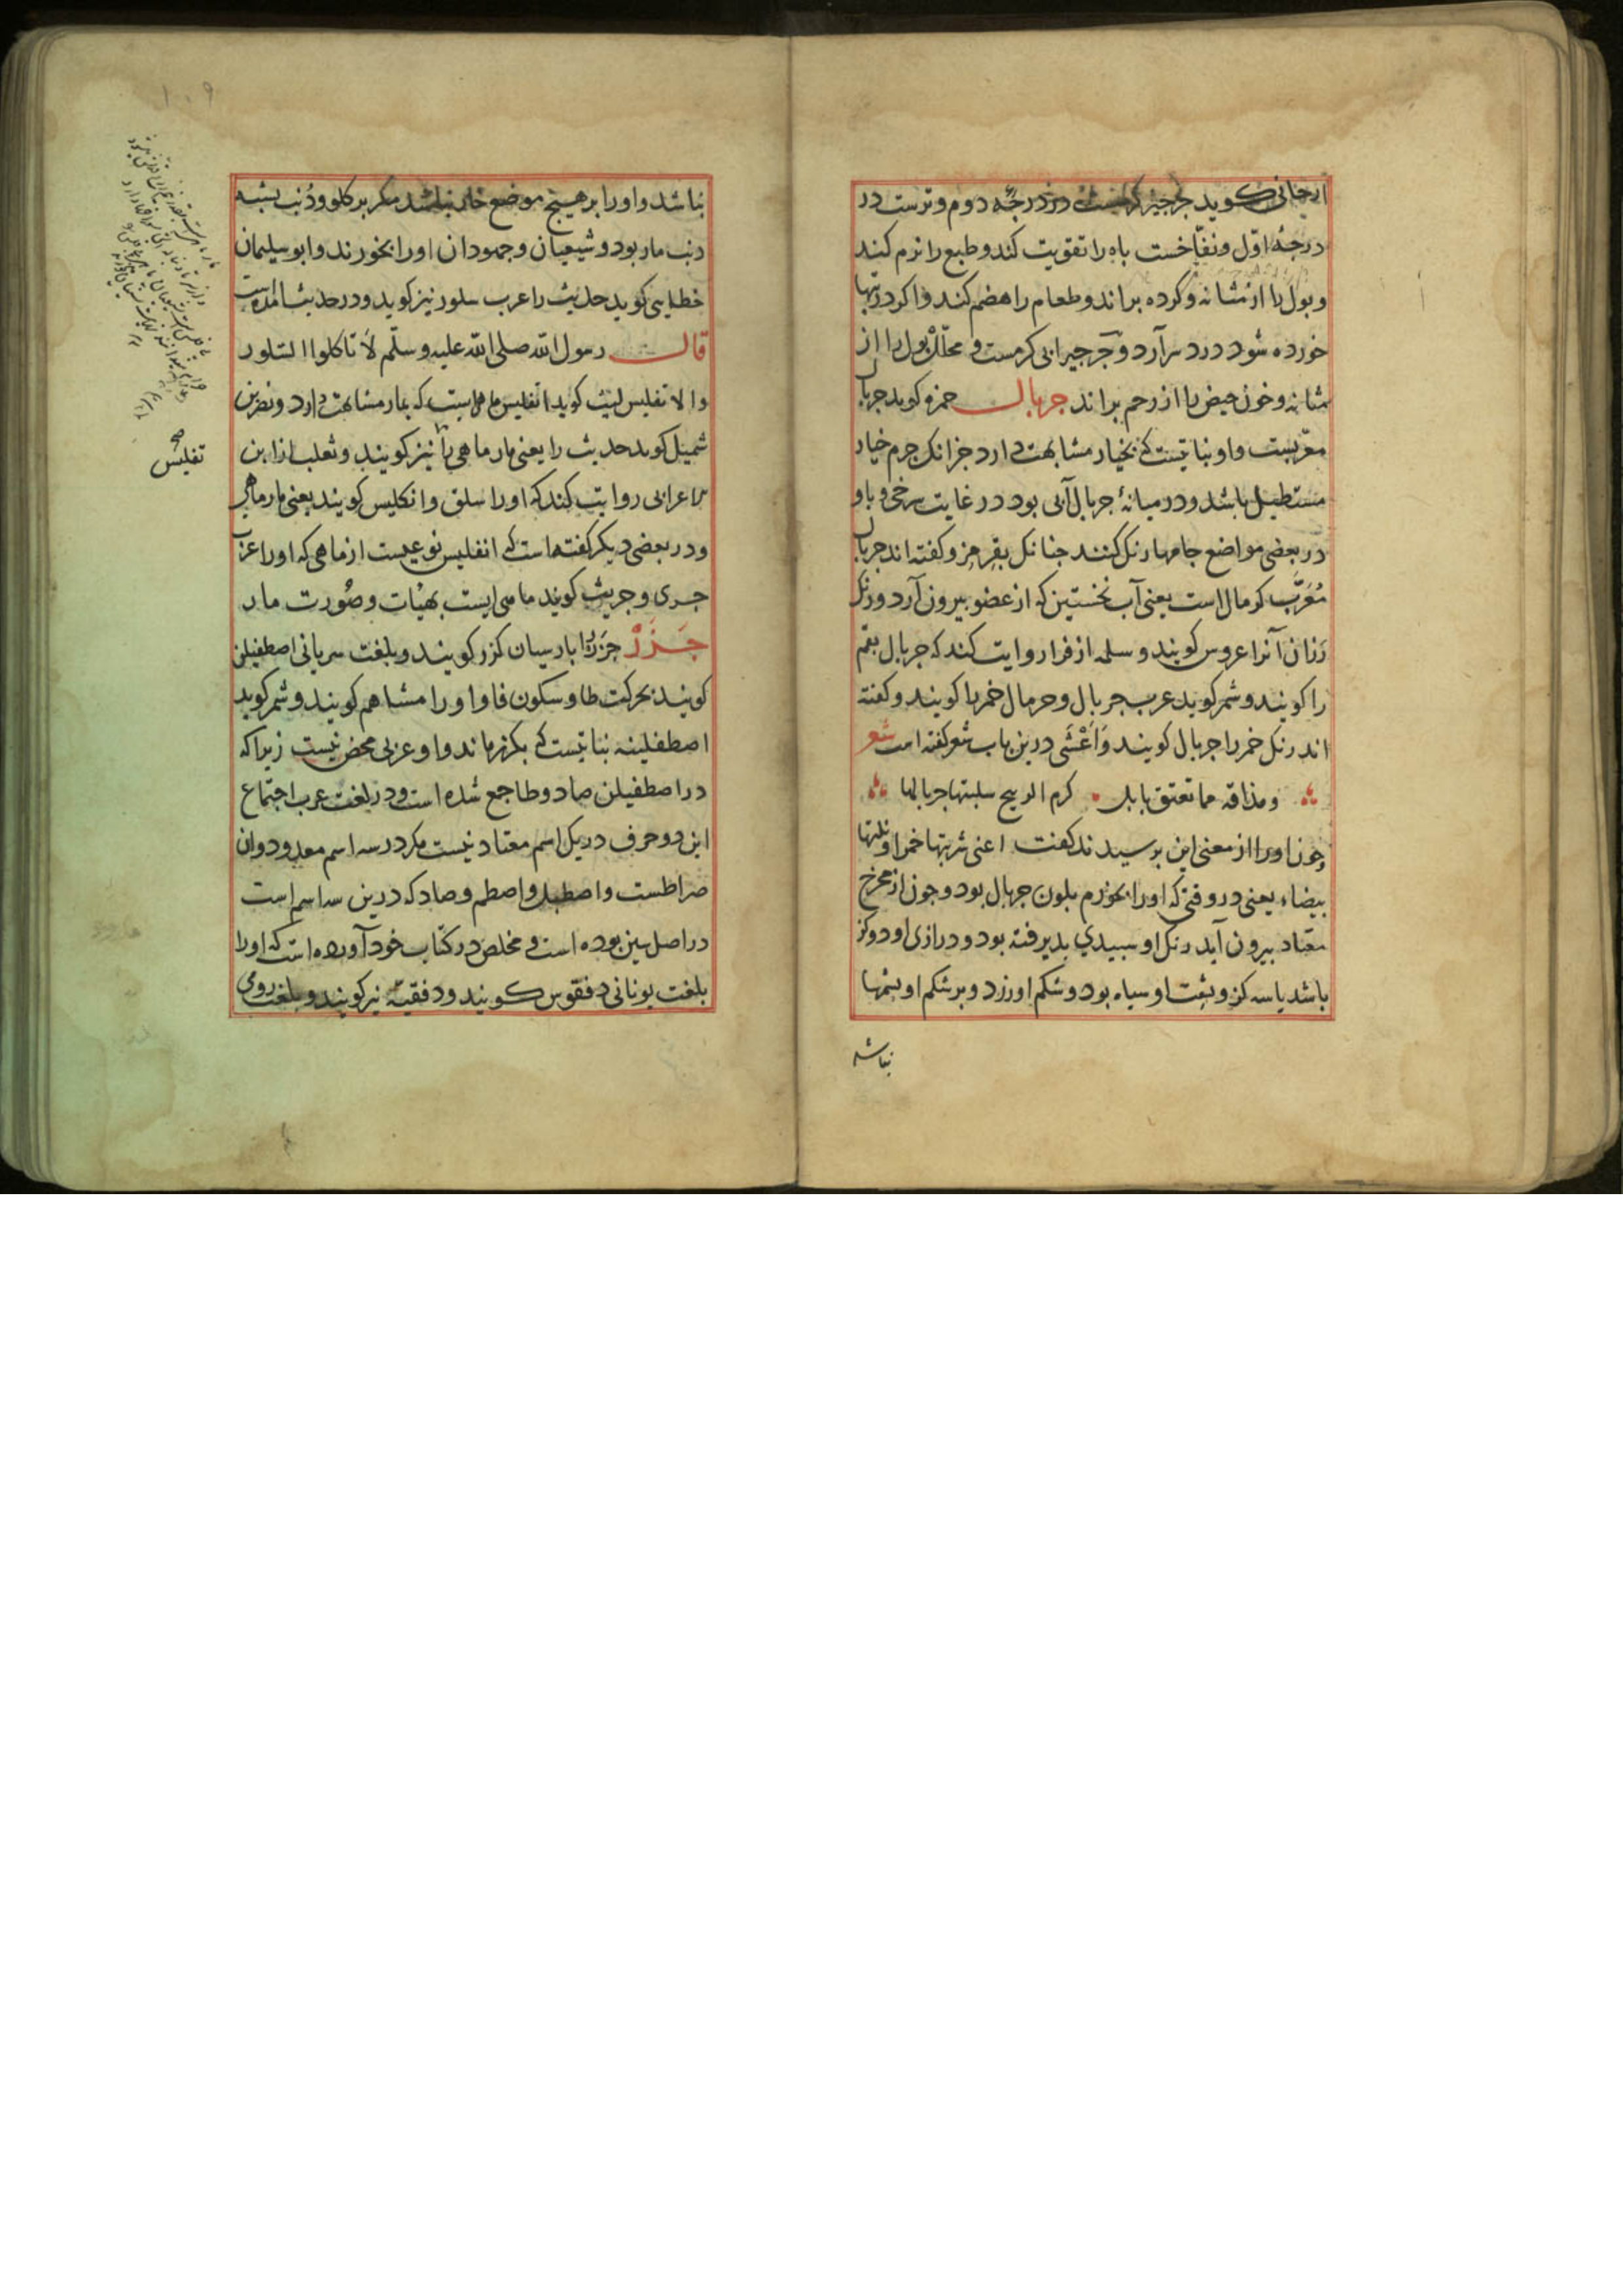 ارجانی کوید جرجیر کرمست در درجهٔ دوم و ترست در
درجهٔ اوّل و نفّاخست باه را تقویت کند و طبع را نرم کند
و بول را از مثانه و کرده براند و طعام را هضم کند و اکر در تنها
خورده شود درد سر آرد و جرجیر ابی کرمست و محلّل بول را از
مثانه و خون حیض را از رحم براند جریال حمزه کوید جریال
معرّبست و او نباتیست که بخیار مشابهت دارد جز انک جرم خیار
مستطیل باشد و در میانهٔ جریال آبی بود در غایت سرخی و باو
در بعضی مواضع جامها رنک کنند چنانک بقرمز و کفته اند جریال
مُعَرّب کرمال است یعنی آب نخستین که از عضو بیرون آرد و رنک
رَزان آنرا عروس کویند و سلمه از فرا روایت کند که جریال بقم
را کویند و شمر کوید عرب جریال و جرمال خمر را کویند و کفته
اند رنک خمر را جریال کویند وَاَعْشَی درین باب شعر کفته است شعر
ومذاقه مما تعتق بابل کرم الذبیح سلبتها جریالها
و چون او را از معنی این پرسیدند کفت اعنی شربتها حمرا و بلتها
بیضاء یعنی در وقتی که اورا بخوردم بلون جریال بود و چون از مخرج
معتاد بیرون آید رنک او سبیدی بدیرفته بود و درازی او دو کز
باشد یا سه کز و پشت او سیاه بود و شکم او زرد و بر شکم او پشمها
نباشد
نباشد و اورا بر هیچ موضع خار نباشد مکر بر کلو و ذُنب بشبه
دنب مار بود و شیعیان و جهودان اورا نخورند و ابو سلیمان
خطابی کوید حدیث را عرب سلور نیز کوید و در حدیث آمده است
قال رسول الله صلی الله علیه و سلّم لاَ تاکلوا السّلور
و الا تفلیس لیث کوید انفلیس ماهیست که بمار مشابهت دارد و نضر بن
شمیل کوید حدیث را یعنی مار ماهی را نیز کویند و ثعلب از ابن
اعرابی روایت کند که اورا سلق و انکلیس کویند یعنی مار ماهی
و در بعضی دیکر کفته است که انفلیس نوعیست از ماهی که اورا عرب
جری و جریث کویند ماهی ایست بهیئات و صُورت مار
جَزَرْ جزر را بارسیان کزر کویند و بلغت سریانی اصطفیلن
کویند بحرکت طا و سکون فا و اورا مشا هم کویند و شمر کوید
اصطفلینه نباتیست که بکزر ماند و او عربی محض نیست زیرا که
در اصطفیلن صاد و طا جمع شده است و در لغت عرب اجتماع
این دو حرف در یک اسم معتاد نیست مکر در سه اسم معدود و ان
صراطست و اصطبل و اصطم و صاد که درین سه اسم است
در اصل سین بوده است و مخلص در کتاب خود آورده است که اورا
بلغت یونانی دفقوس کویند و دفقیه نیز کویند و بلغت رومی
۱۰۹
صح
تفلیس